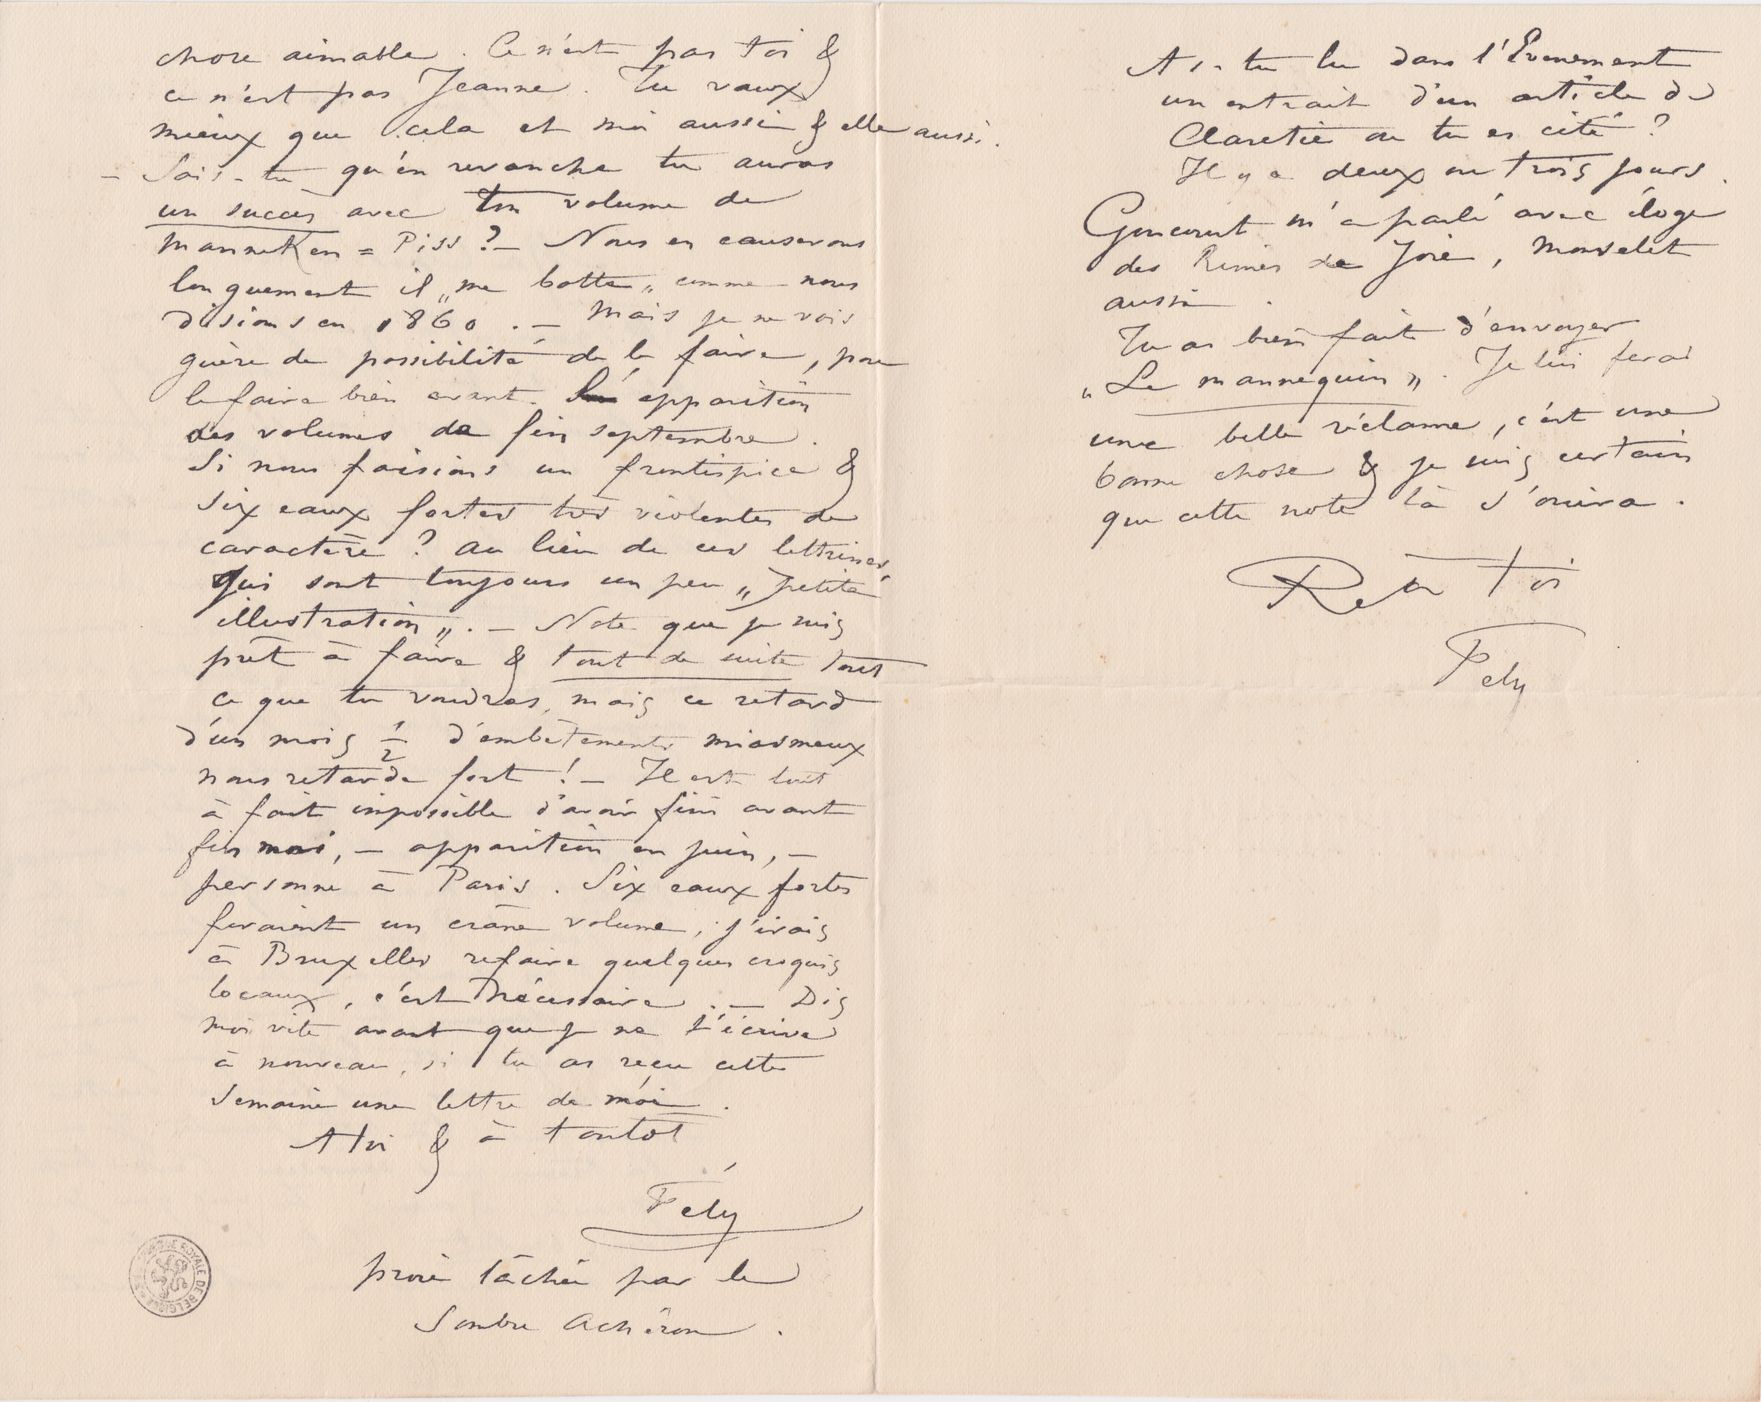 chose aimable. Ce n'est pas toi &
ce n'est pas Jeanne. Tu vaux
mieux que cela et moi aussi & elle aussi.
– Sais-tu qu'en revanche tu auras
un succès avec ton volume de
Manneken = Piss ? – Nous en causerons
longuement il „me botte„ comme nous
disions en 1860. – Mais je ne vois
guère de possibilité de le faire, pour
le faire bien avant apparition
des volumes de fin septembre.
Si nous faisions un frontispice &
six eaux fortes très violentes de
caractère ? au lieu de ces lettrines,
qui sont toujours un peu „petite
illustration„. – Note que je suis
prêt à faire & tout de suite tout
ce que tu voudras, mais ce retard
d'un mois 1/2 d'embêtements miasmeux
nous retarde fort ! – Il est tout
à fait impossible d'avoir fini avant
fin mai, – apparition en juin, –
personne à Paris. Six eaux fortes
feraient un crâne volume, j'irais
à Bruxelles refaire quelques croquis
locaux, c'est nécessaire. – Dis
moi vite avant que je ne t'écrive
à nouveau, si tu as reçu cette
semaine une lettre de moi.
A toi & à tantôt
Fély
proie lâchée par le
Sombre Achéron.
BIBLIOTHÈQUE ROYALE DE BELGIQUE
As-tu lu dans l'Evenement
un extrait d'un article de
Claretie ou tu es cité ?
Il y a deux ou trois jours.
Goncourt m'a parlé avec éloge
des Rimes de Joie, Monselet
aussi.
Tu as bien fait d'envoyer
„Le mannequin„. Je lui ferai
une belle réclame, c'est une
bonne chose & je suis certain
que cette note là s'ouïra.
Re à Toi
Fély